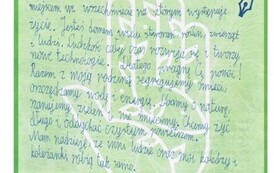 miejscem we wszechświecie, w którym występuje
życie. Jesteś domem wielu stworzeń roślin, zwierząt
i ludzi. Ludzkość cały czas rozwija się i tworzy
nowe technologie. Dlatego pragnę Ci pomóc!
Razem z moją rodziną segregujemy śmieci,
oszczędzamy wodę i energię. Dbamy o naturę,
szanujemy zieleń, nie śmiecimy. Chcemy żyć
długo i oddychać czystym powietrzem.
Mam nadzieję, że inni ludzie oraz moi koledzy i
koleżanki robią tak samo.